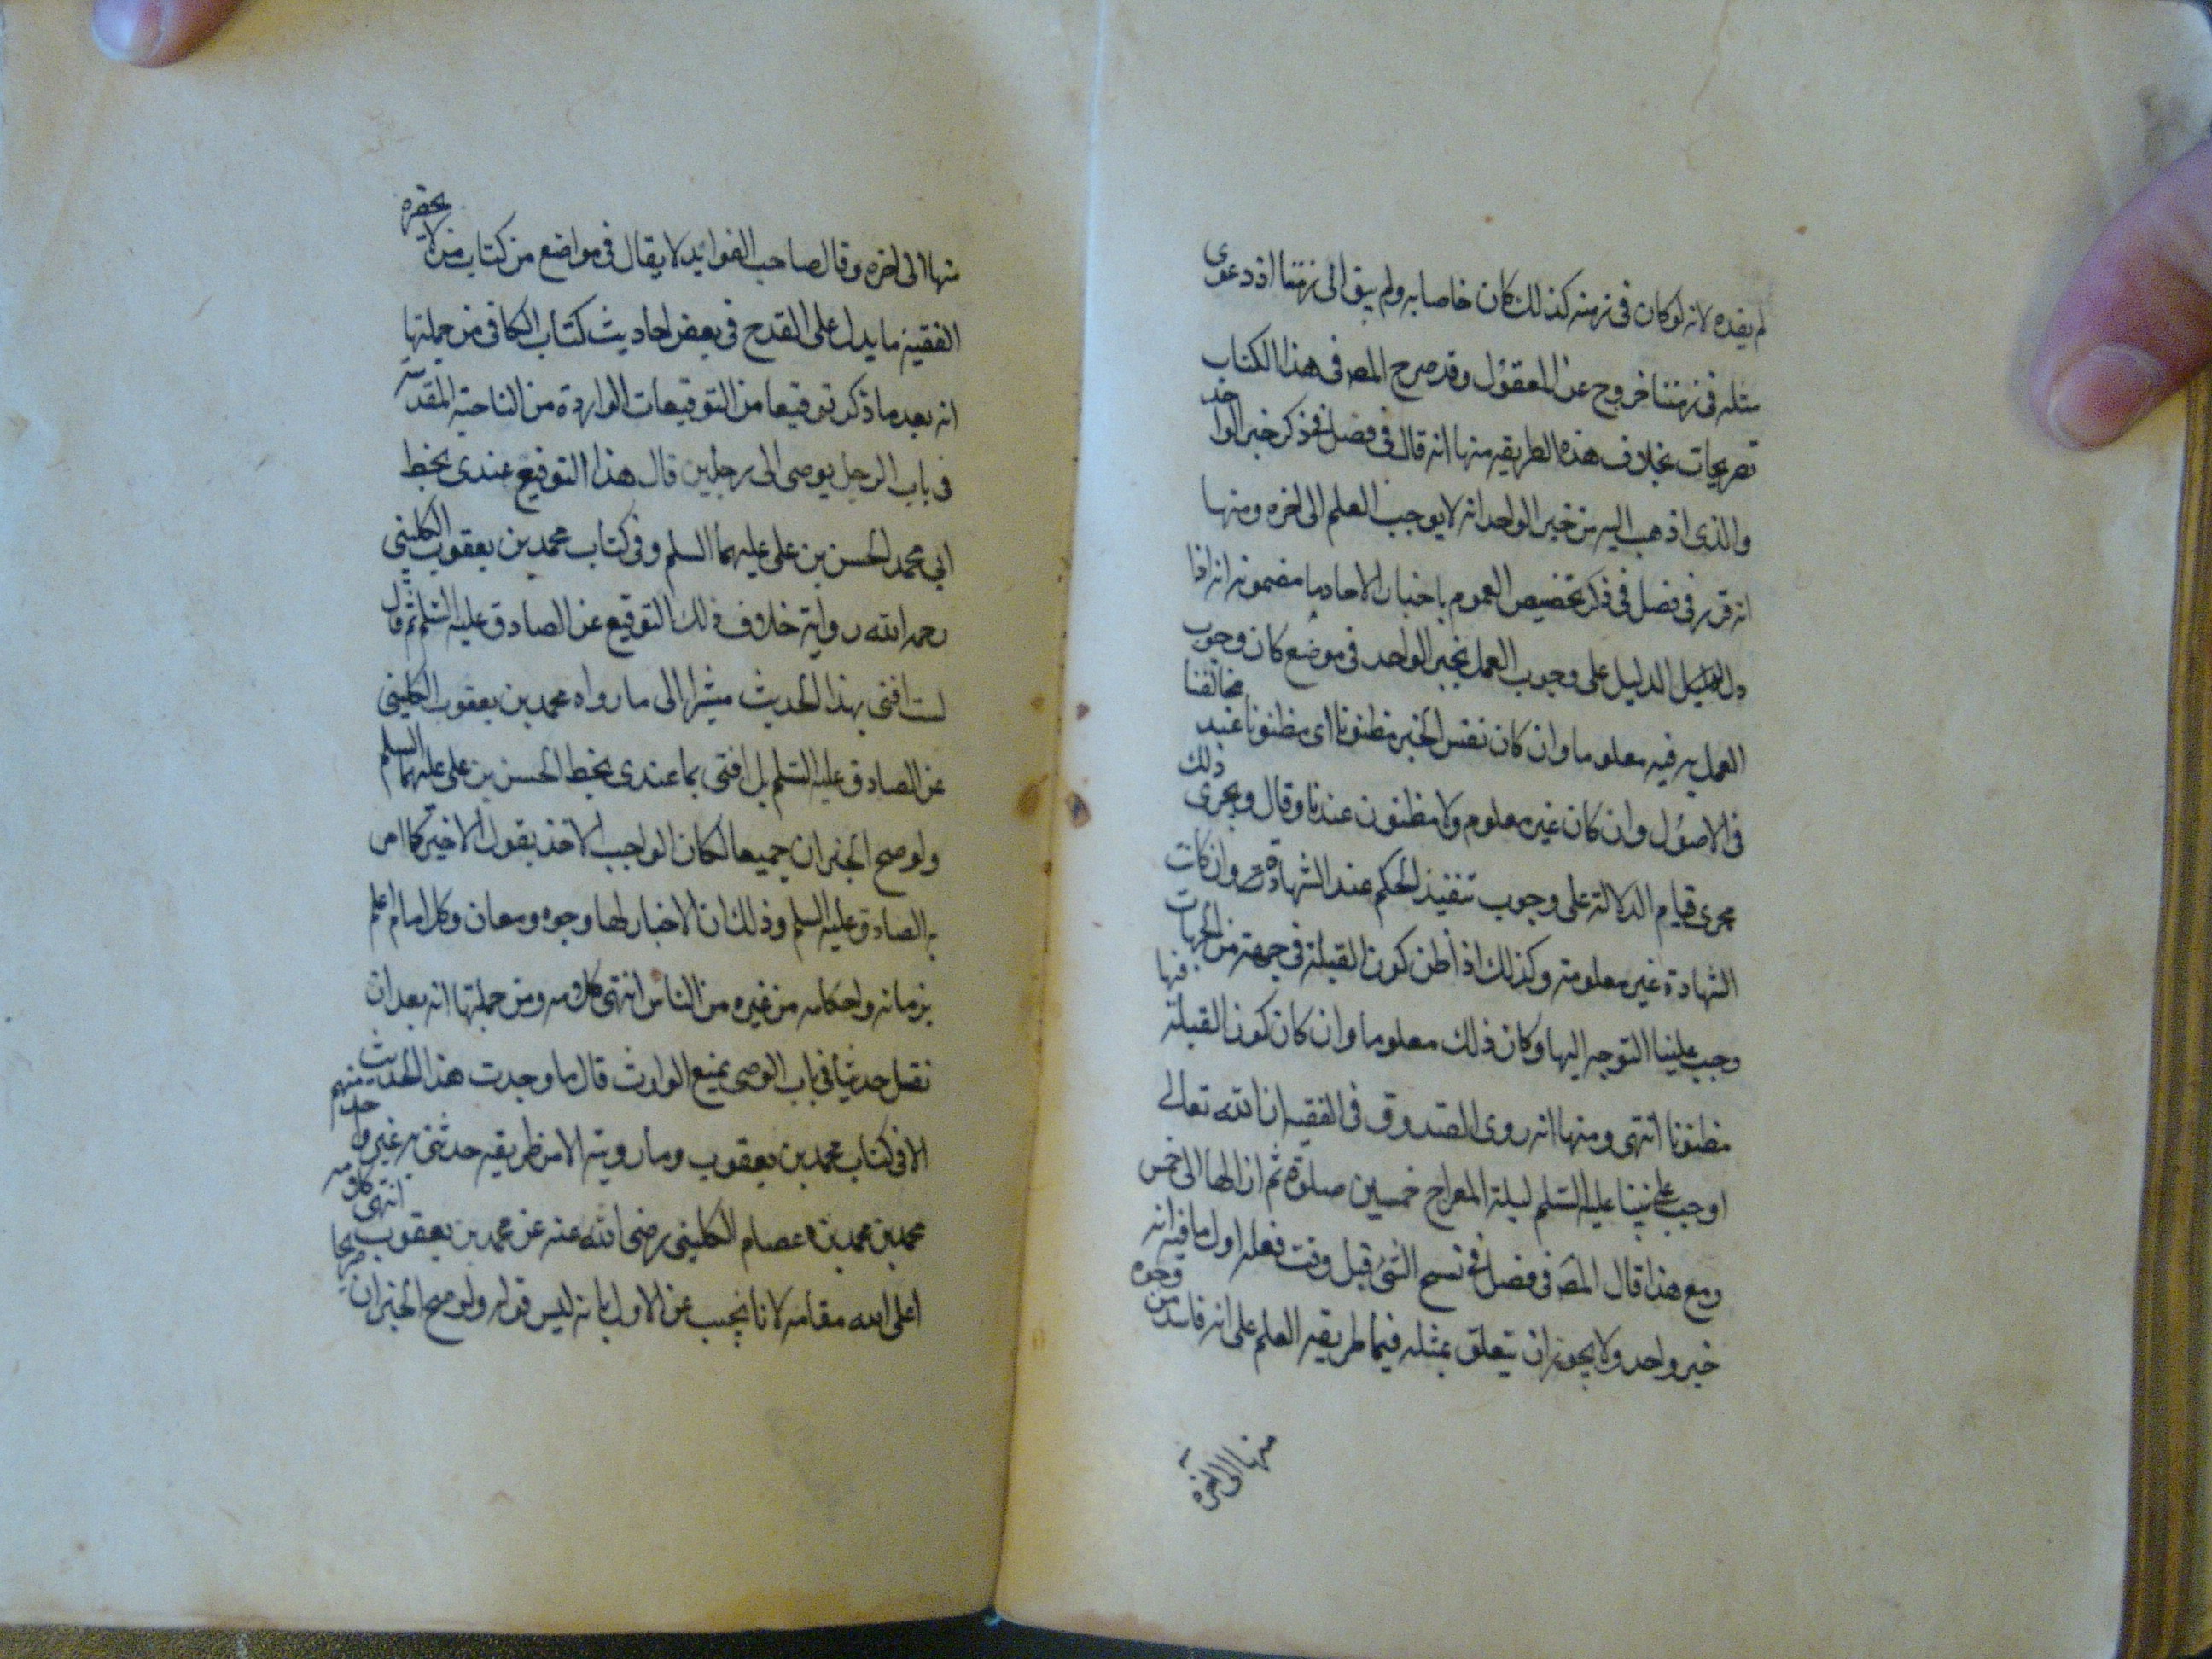 لم يفده لانه لو كان في زمنه كذلك كان خاصا به ولم يبق الى زمننا اذ دعوى
مثله في زمننا خروج عن المعقول وقد صرح المصـ في هذا الكتاب
تصريحات بخلاف هذه الطريقه منها انه قال في فصل في ذكر خبر الواحد
والذى اذهب اليه من خبر الواحد انه لا يوجب العلم الى اخره ومنها
انه قرر في فصل في ذكر تخصيص العموم باخبار الاحاد ما مضمونه انه اذا
دل الدليل على وجوب العمل بخبر الواحد في موضع كان وجوب
العمل به فيه معلوما وان كان نفس الخبر مظنونا اى مظنونا عند مخالفنا
في الاصول وان كان غير معلوم ولا مظنون عندنا وقال ويجرى ذلك
مجرى قيام الدلالة على وجوب تنفيذ الحكم عند الشهادة وان كانت
الشهادة غير معلومة وكذلك اذا ظن كون القبلة في جهة من الجهات
وجب علينا التوجه اليها وكان ذلك معلوما وان كان كون القبلة فيها
مظنونا انتهى ومنها انه روى الصدوق في الفقيه ان الله تعالى
اوجب على نبينا عليه السلم ليلة المعراج خمسين صلوة ثم ازالها الى خمس
ومع هذا قال المصـ في فصل في نسخ الشئ قبل وقت فعله اول ما فيه انه
خبر واحد ولا يجوز ان يتعلق بمثله فيما طريقه العلم على انه فاسد من وجوه
منها الى اخره
منها الى اخره وقال صاحب الفوايد لا يقال في مواضع من كتاب من لا يحضره
الفقيه ما يدل على القدح في بعض احاديث كتاب الكافي من جملتها
انه بعد ما ذكر توقيعا من التوقيعات الواردة من الناحية المقدسة
في باب الرجل يوصى الى رجلين قال هذا التوقيع عندى بخط
ابي محمد الحسن بن علي عليهما السلم وفي كتاب محمد بن يعقوب الكليني
رحمه الله رواية خلاف ذلك التوقيع عن الصادق عليه السلم ثم قال
لست افتى بهذا الحديث مشيرا الى ما رواه محمد بن يعقوب الكليني
عن الصادق عليه السلم بل افتى بما عندى بخط الحسن بن علي عليهما السلم
ولو صح الخبران جميعا لكان الواجب الاخذ بقول الاخير كما امر
به الصادق عليه السلم وذلك ان الاخبار لها وجوه ومعان وكل امام اعلم
بزمانه واحكامه من غيره من الناس انتهى كلامه ومن جملتها انه بعد ان
نقل حديثا في باب الوصى يمنع الوارث قال ما وجدت هذا الحديث
الا في كتاب محمد بن يعقوب وما رويته الا من طريقه حدثني به غير واحد منهم
محمد بن محمد بن عصام الكليني رضى الله عنه عن محمد بن يعقوب انتهى كلامه
اعلى الله مقامه لانا نجيب عن الاول بانه ليس قوله ولو صح الخبران صريحا